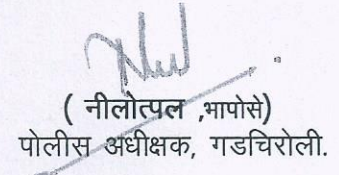 ( नीलोत्पल ,भापोसे)
पोलीस अधीक्षक, गडचिरोली.